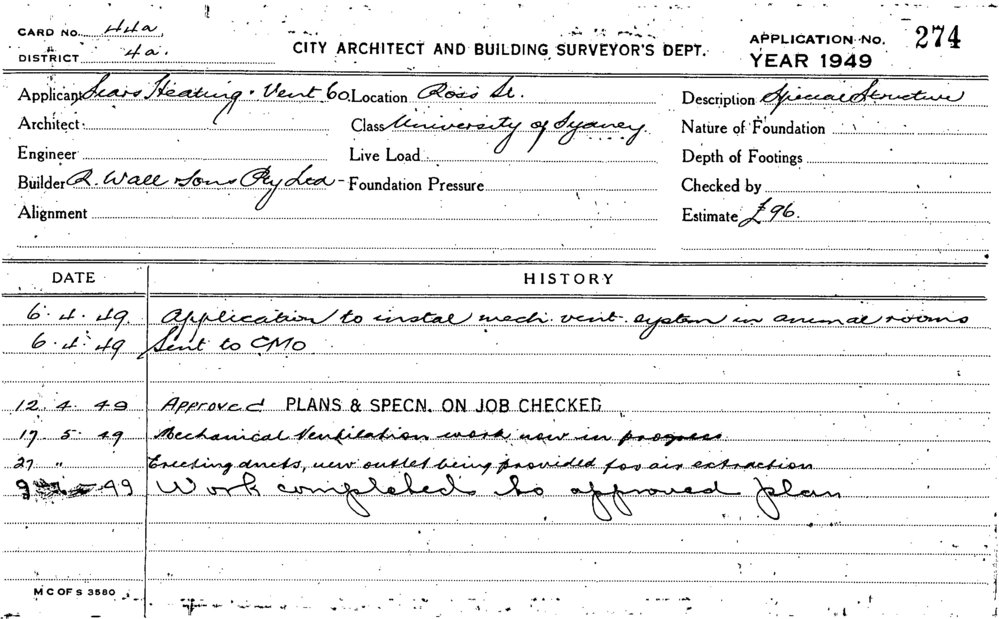 CARD NO. 44a
DISTRICT 4a.
CITY ARCHITECT AND BUILDING SURVEYOR'S DEPT.
APPLICATION NO. 274
YEAR 1949
Applicant Sears Heating & Vent Co. Location Ross St. Description Special Structure
Architect Class University of Sydney. Nature of Foundation
Engineer Live Load Depth of Footings
Builder R. Wall & Sons Pty Ltd - Foundation Pressure Checked by
Alignment Estimate £96.
DATE HISTORY
6. 4. 49. Application to instal mech. vent. system in animal rooms
6. 4. 49 Sent to CMO
12. 4. 49 Approved PLANS & SPECN. ON JOB CHECKED
17. 5. 49 Mechanical Ventilation work now in progress
27 " Erecting ducts, new outlet being provided for air extraction
49 Work completed to approved plan
M C OF S 3580